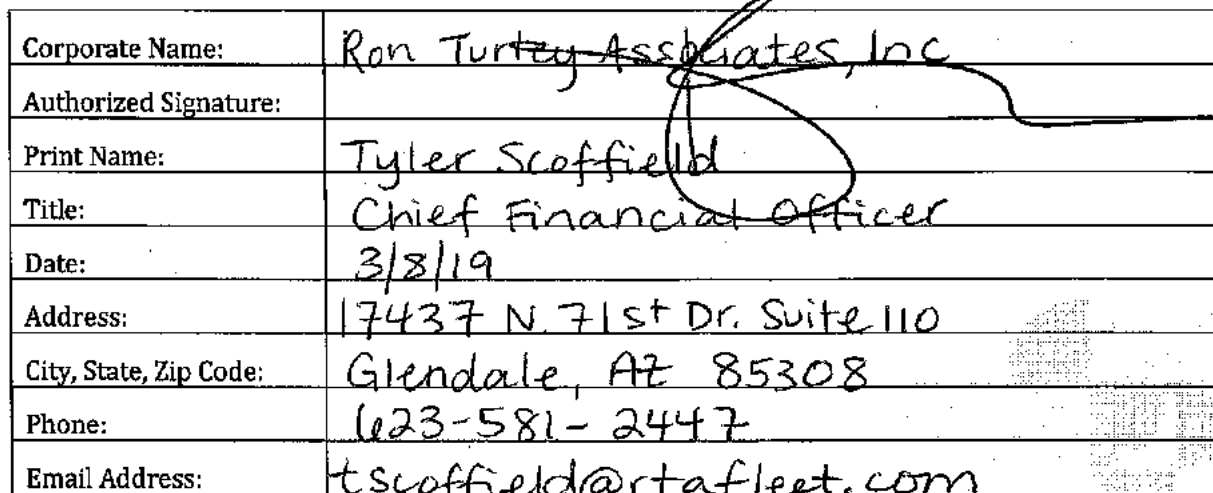 Corporate Name: Ron Turley Associates, Inc
Authorized Signature:
Print Name: Tyler Scoffield
Title: Chief Financial Officer
Date: 3/8/19
Address: 17437 N. 71st Dr. Suite 110
City, State, Zip Code: Glendale, AZ 85308
Phone: 623-581-2447
Email Address: tscoffield@rtafleet.com